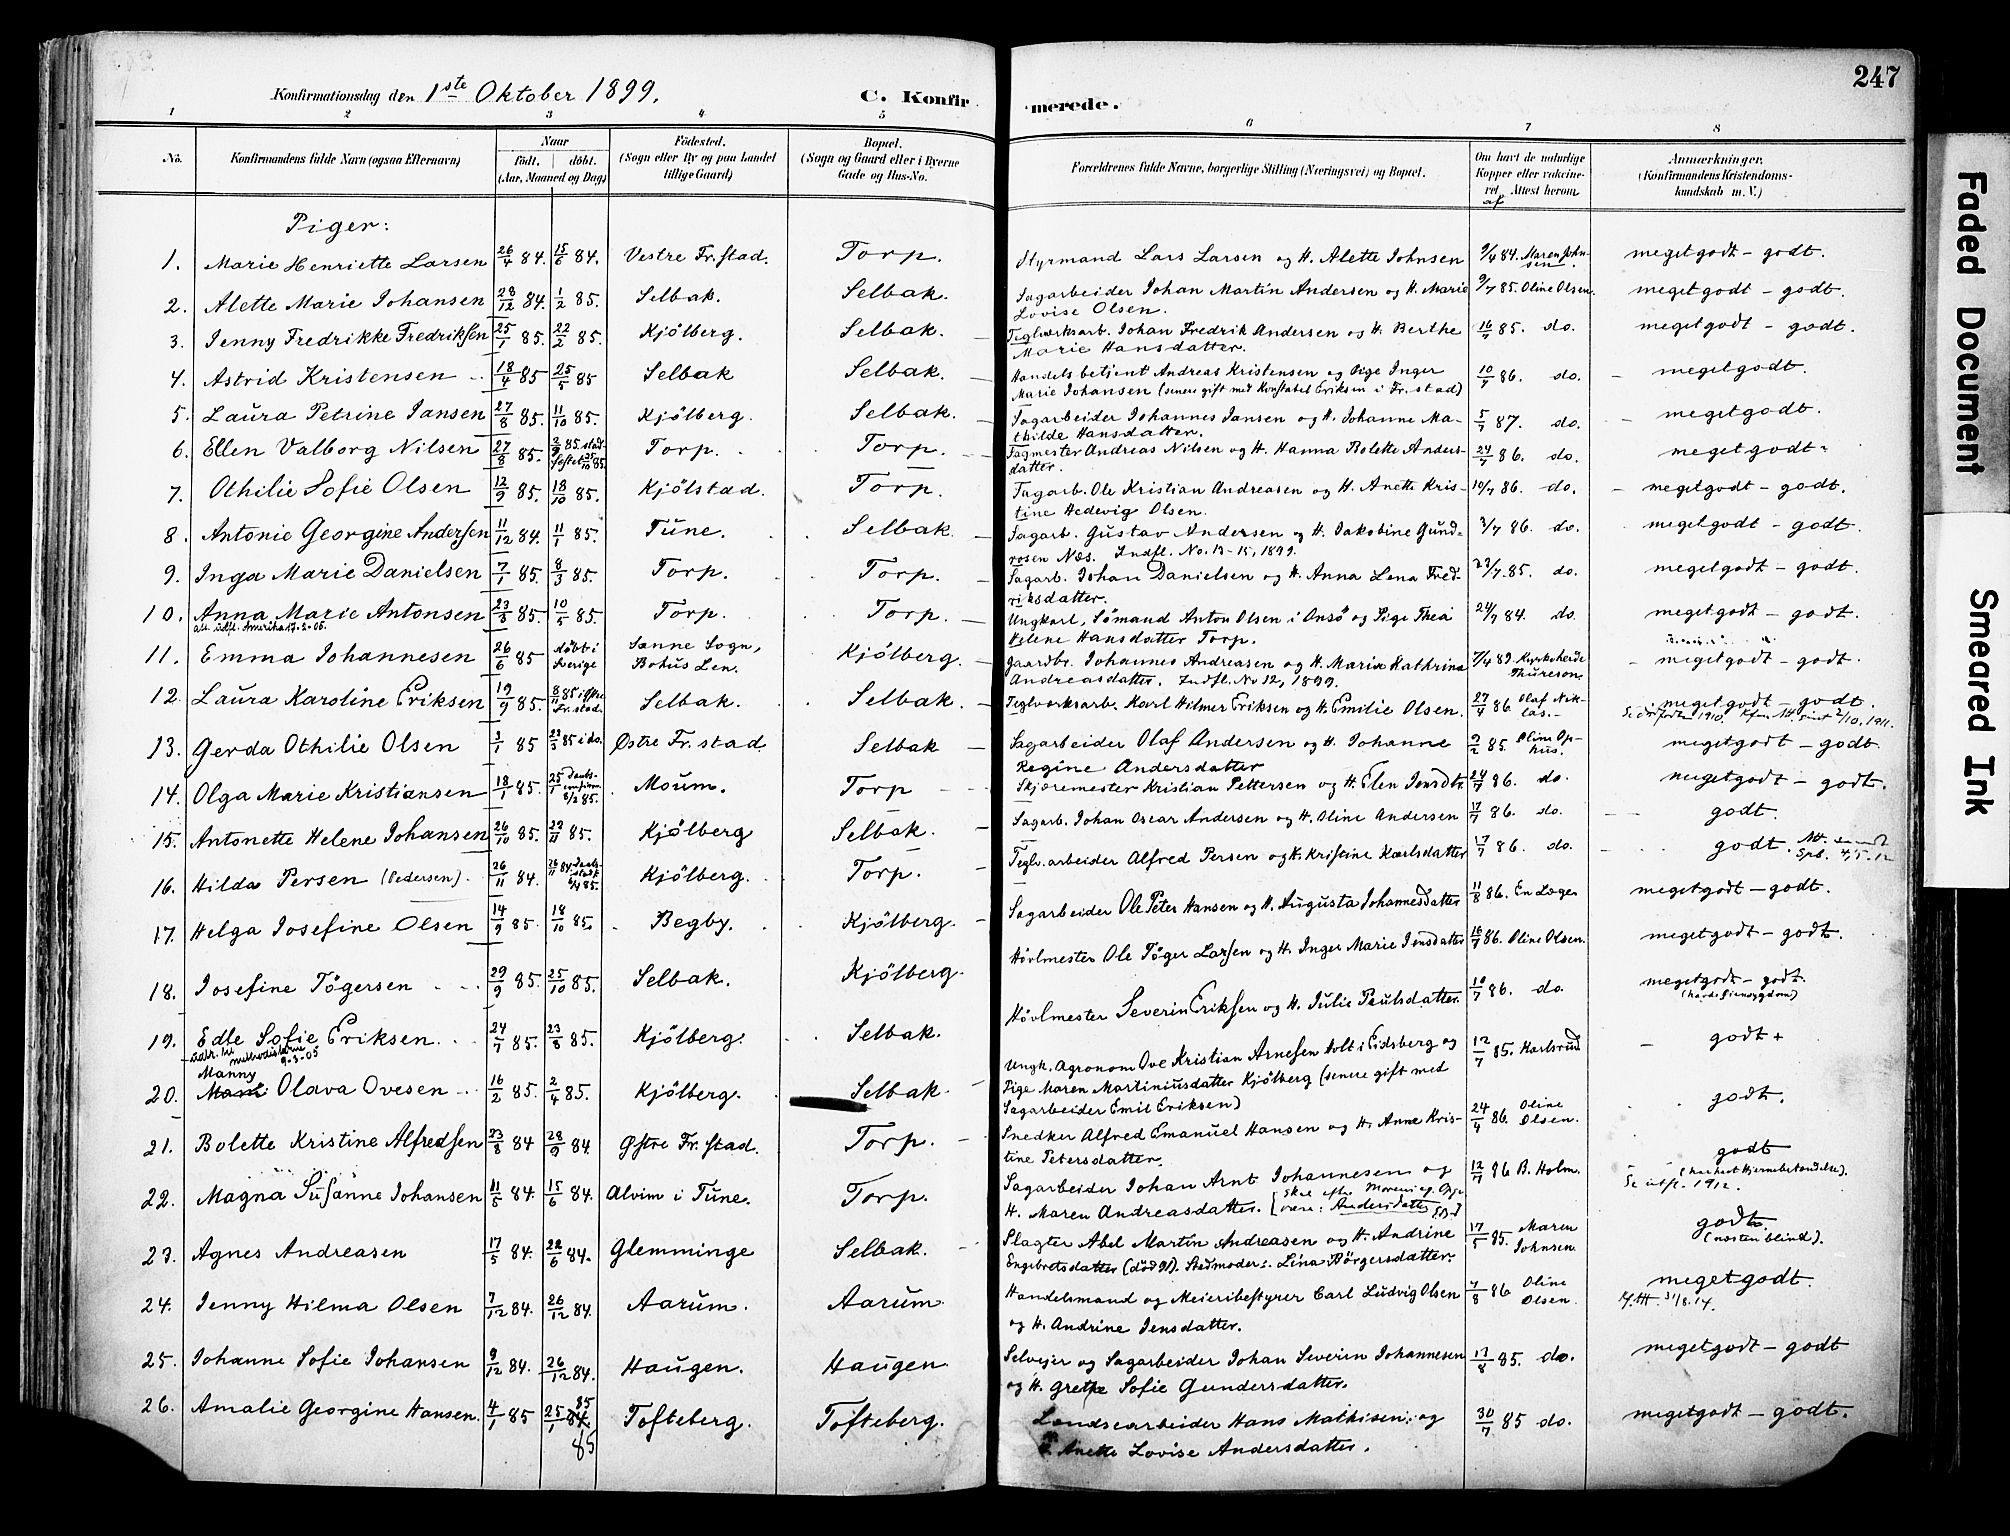 247
Konfirmationsdag den 1ste Oktober 1899. C. Konfir merede.
1 2 3 4 5 6 7 8
No. Konfirmandens fulde Navn (ogsaa Efternavn) Naar födt. döbt. (Aar, Maaned og Dag) Födested. (Sogn eller By og paa Landet tillige Gaard) Bopæl. (Sogn og Gaard eller i Byerne Gade og Hus-No. Forældrenes fulde Navne, borgerlige Stilling (Næringsvei) og Bopæl. Om havt de naturlige Kopper eller vaccineret af Attest herom Anmærkninger. (Konfirmandens Kristendomskundskab m. V.)
Piger:
1. Marie Henriette Larsen 26/4 84. 15/6 84. Vestre Fr.stad. Torp. Styrmand Lars Larsen og H. Alette Johnsen 9/4 84. Maren Johnsen. megetgodt - godt.
2. Alette Marie Johansen 28/12 84. 1/2 85. Selbak. Selbak. Sagarbeider Johan Martin Andersen og H. Marie 9/7 85. Oline Olsen. megetgodt - godt.
Lovise Olsen.
3. Jenny Fredrikke Fredriksen 25/1 85. 22/2 85. Kjölberg. Selbak. Teglværksarb. Johan Fredrik Andersen og H. Berthe 16/7 85. do. megetgodt - godt.
Marie Hansdatter.
4. Astrid Kristensen 18/4 85 25/5 85 Selbak Selbak. Handelsbetjent Andreas Kristensen og Pige Inger 10/7 86. do. megetgodt.
Marie Johansen (senere gift med Konstabel Eriksen i Fr.stad)
5. Laura Petrine Jansen 27/8 85. 11/10 85. Kjölberg. Selbak. Sagarbeider Johannes Jansen og H. Johanne Ma- 5/7 87. do. megetgodt.
thilde Hansdatter.
6. Ellen Valborg Nilsen 27/8 85. Torp. Torp. Sagmester Andreas Nilsen og H. Hanna Bolette Anders- 24/7 86. do. megetgodt.
datter.
7. Othilie Sofie Olsen 12/9 85. 18/10 85. Kjölstad. Torp. Sagarb. Ole Kristian Andreasen og H. Anette Kris- 10/7 86. do. megetgodt - godt.
tine Hedevig Olsen.
8. Antonie Georgine Andersen 11/12 84. 11/1 85. Tune. Selbak. Sagarb. Gustav Andersen og H. Jakobine Gund- 3/7 86. do. megetgodt - godt.
rosen Næs. Indfl. No. 13-15, 1899.
9. Inga Marie Danielsen 7/1 85. 8/3 85. Torp. Torp. Sagarb. Johan Danielsen og H. Anna Lena Fred- 23/7 85. do. megetgodt - godt.
riksdatter.
10. Anna Marie Antonsen 23/3 85. 10/5 85. Torp. Torp. Ungkarl, Sömand Anton Olsen i Onsö og Pige Thea 24/7 84. do. megetgodt - godt.
att. udfl. Amerika 17-2-05. Helene Hansdatter Torp.
11. Emma Johannesen 26/6 85 döbt i Sverige Sanne Sogn, Bohus Len. Kjölberg. Gaardbr. Johannes Andreasen og H. Maria Kathrina 7/4 89. Kyrkoherde Thureson. megetgodt - godt.
Andreasdatter. Indfl. No 12, 1899.
12. Laura Karoline Eriksen 19/9 85. 8/11 85 i Østre Fr.stad. Selbak. Selbak. Teglværksarb. Karl Hilmer Eriksen og H. Emilie Olsen. 27/4 86. Olaf Niklas. megetgodt - godt.
13. Gerda Othilie Olsen 3/1 85 22/3 85 i do. Østre Fr.stad. Selbak Sagarbeider Olaf Andersen og H. Johanne 9/2 85. Oline Ophus. megetgodt - godt.
Regine Andersdatter
14. Olga Marie Kristiansen 18/1 85. 25/1 Moum. Torp Skjæremester Kristian Pettersen og H. Elen Jensdtr. 24/7 86. do. megetgodt - godt.
15. Antonette Helene Johansen 26/10 85. 22/11 85. Kjölberg Selbak. Sagarb. Johan Oscar Andersen og H. Oline Andersen 17/7 86. do. godt.
16. Hilda Persen (Pedersen). 26/11 84. Kjölberg. Torp. Teglv.arbeider Alfred Persen og H. Kristine Karlsdatter 17/7 86. do. godt.
17. Helga Josefine Olsen 14/9 85. 18/10 85. Begby. Kjölberg. Sagarbeider Ole Peter Hansen og H. Augusta Johannesdatter 11/8 86. En Læge megetgodt - godt.
18. Josefine Tögersen 29/9 85. 25/10 85. Selbak. Kjölberg. Hövlmester Ole Töger Larsen og H. Inger Marie Jensdatter 16/7 86. Oline Olsen. megetgodt - godt.
19. Edle Sofie Eriksen. 24/7 85. 23/8 85. Kjölberg. Selbak. Hövlmester Severin Eriksen og H. Julie Paulsdatter. 10/7 86. do. megetgodt - godt.
udtr. til methodistern 9-3-05
20. Manny Olava Ovesen 16/2 85. 2/4 85. Kjölberg. Selbak. Ungk. Agronom Ove Kristian Arnesen Holt i Eidsberg og 12/7 85. Karlsrud godt +
Pige Maren Martiniusdatter Kjölberg (senere gift med
Sagarbeider Emil Eriksen)
21. Bolette Kristine Alfredsen 23/8 84 28/9 84. Østre Fr.stad. Torp. Snedker Alfred Emanuel Hansen og H. Anne Kris- 24/4 86. Oline Olsen. godt.
tine Petersdatter.
22. Magna Susanne Johansen 11/5 84. 15/6 84. Alvim i Tune. Torp. Sagarbeider Johan Arnt Johannesen og 12/7 86 B. Holm. godt
H. Maren Andreasdatter. Se utfl. 1912.
23. Agnes Andreasen 17/5 84. 22/6 84. Glemminge Selbak. Slagter Abel Martin Andreasen og H. Andrine 17/5 85. Maren Johnsen. godt. (næsten blind).
Engebretsdatter (död 91). Stedmoder: Lina Börgersdatter.
24. Jenny Hilma Olsen 7/12 84. 26/12 84. Aarum. Aarum. Handelsmand og Meieribestyrer Carl Ludvig Olsen 7/8 86 Oline Olsen. megetgodt.
og H. Andrine Jensdatter.
25. Johanne Sofie Johansen 9/12 84. 26/12 84. Haugen. Haugen. Selveier og Sagarbeider Johan Severin Johannesen 17/8 85. do. megetgodt - godt
og H. Grethe Sofie Gundersdatter.
26. Amalie Georgine Hansen. 4/1 85 25/1 85 Tofteberg. Tofteberg. Landsearbeider Hans Mathisen og 30/7 85 do. megetgodt - godt.
H. Anette Lovise Andersdatter.
Faded Document
Smeared Ink